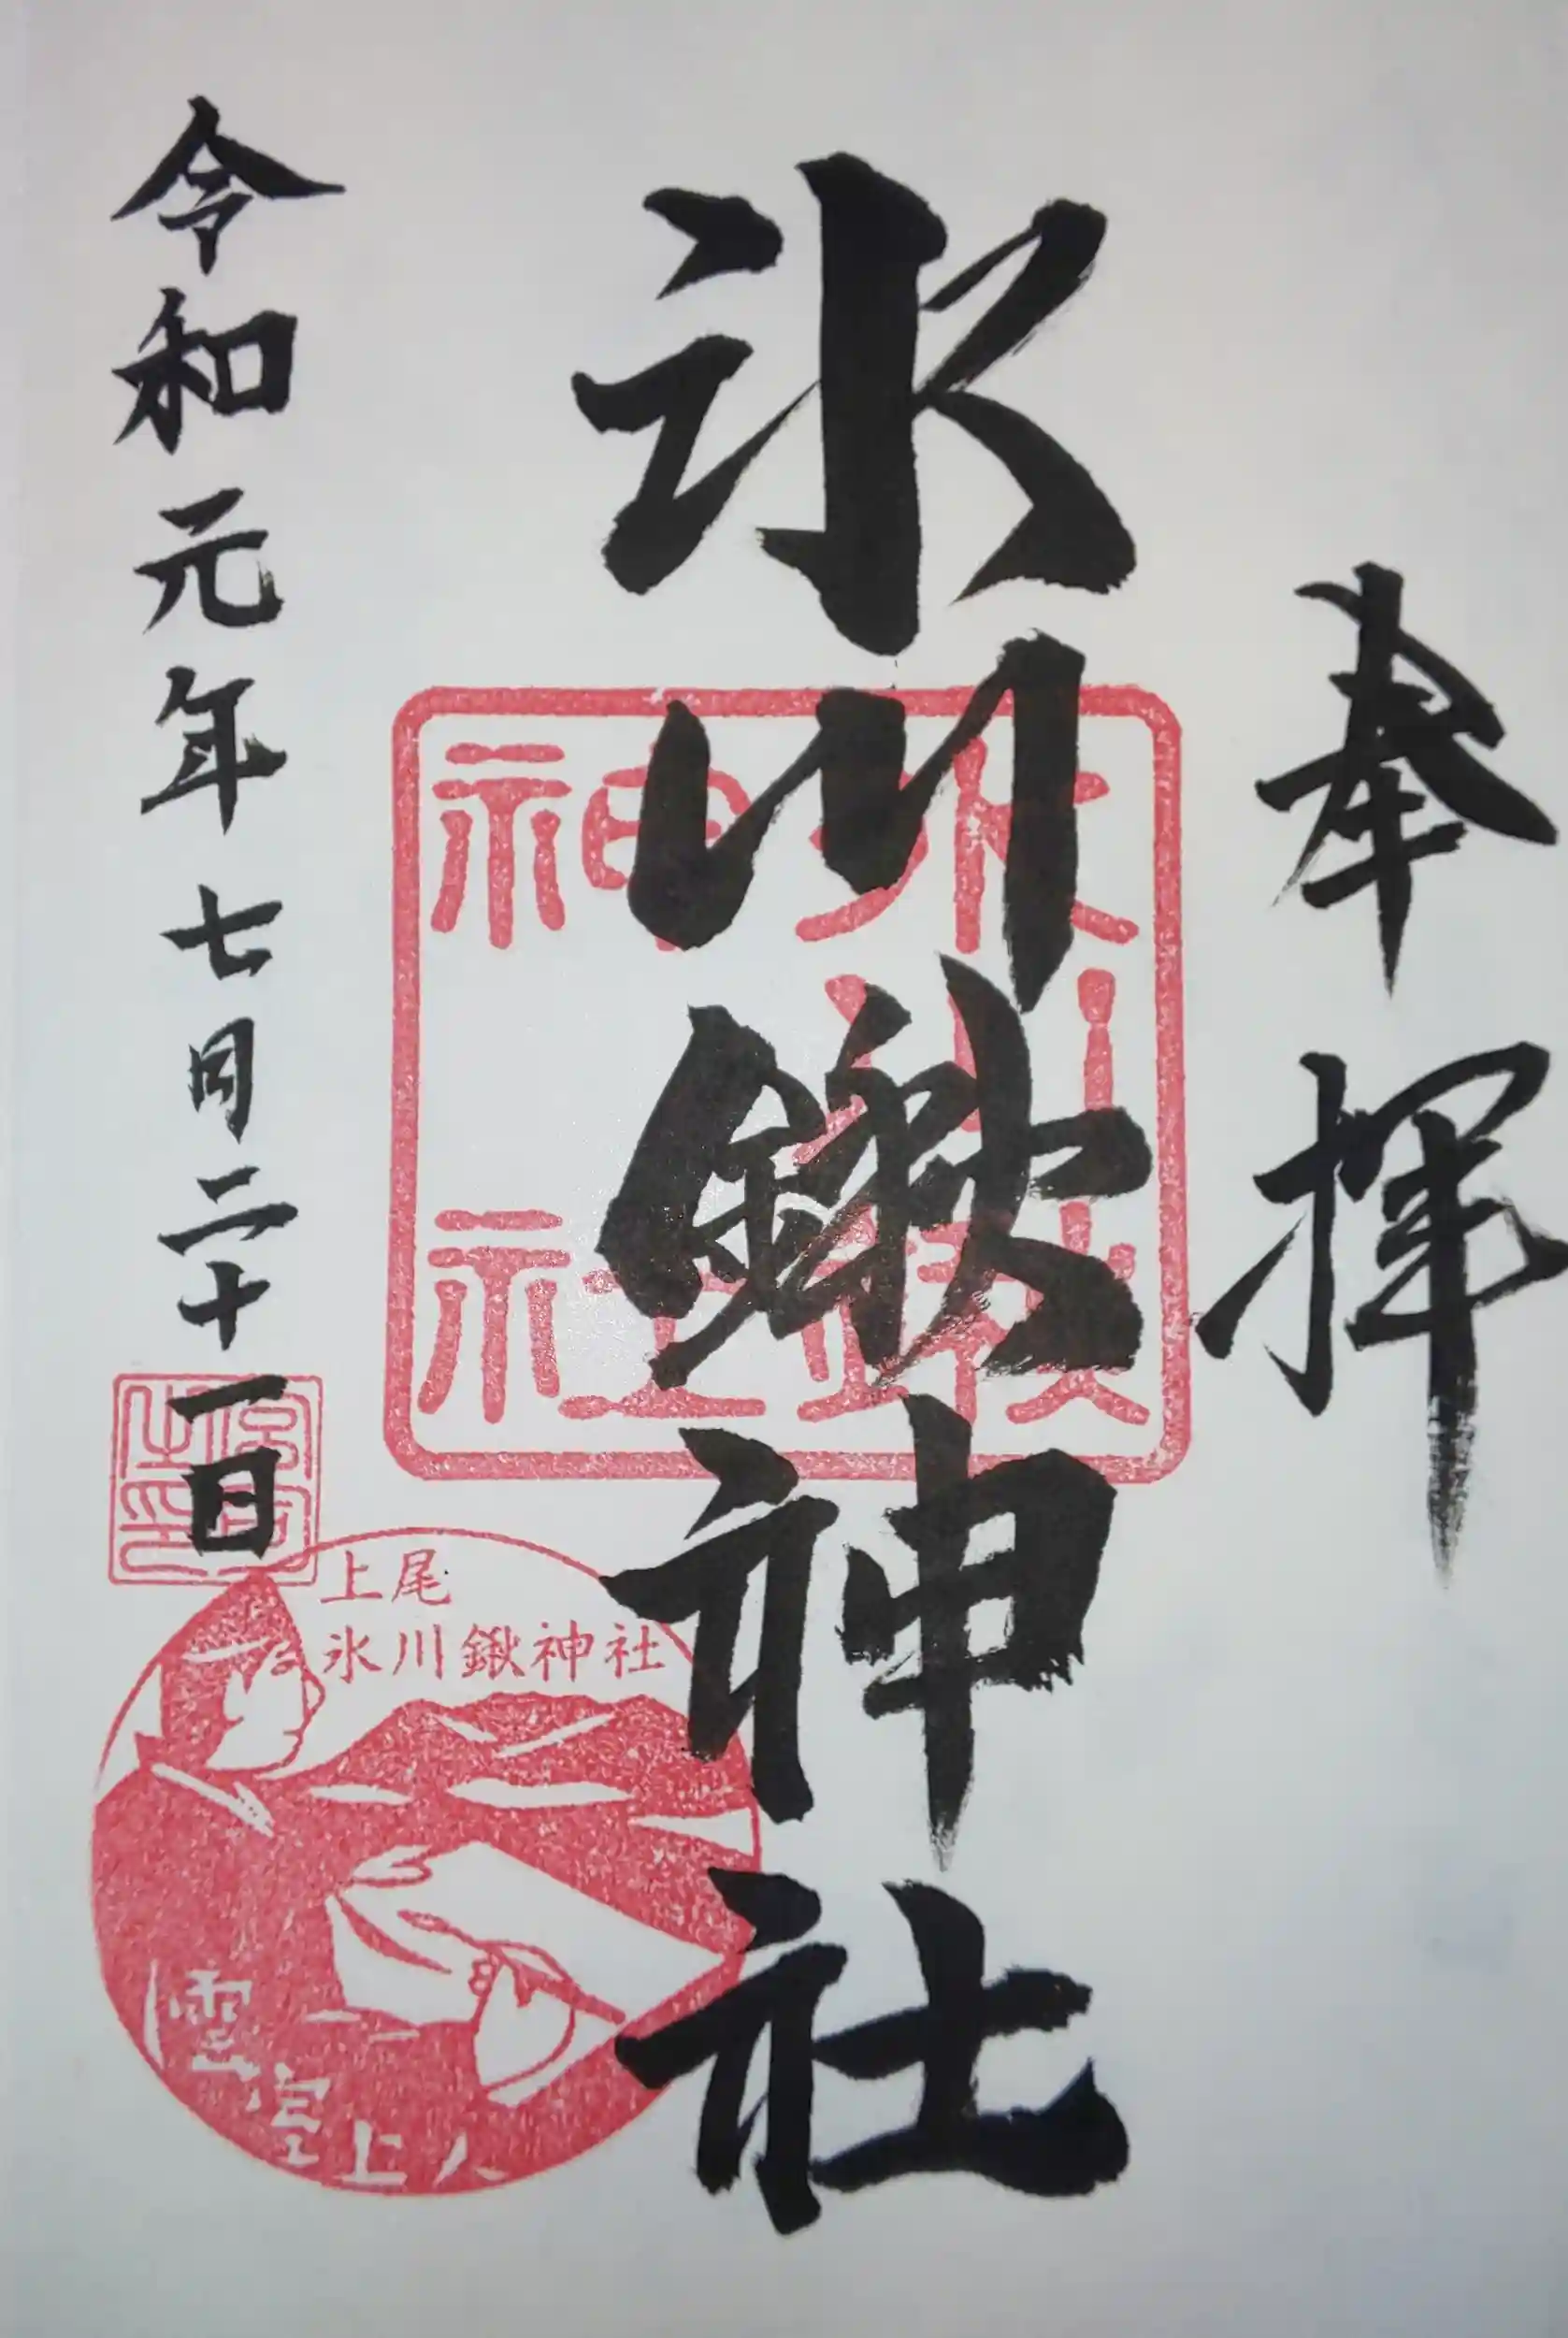 奉拝
氷川鍬神社
氷川鍬
神社
令和元年七月二十一日
上尾
氷川鍬神社
雲室上人